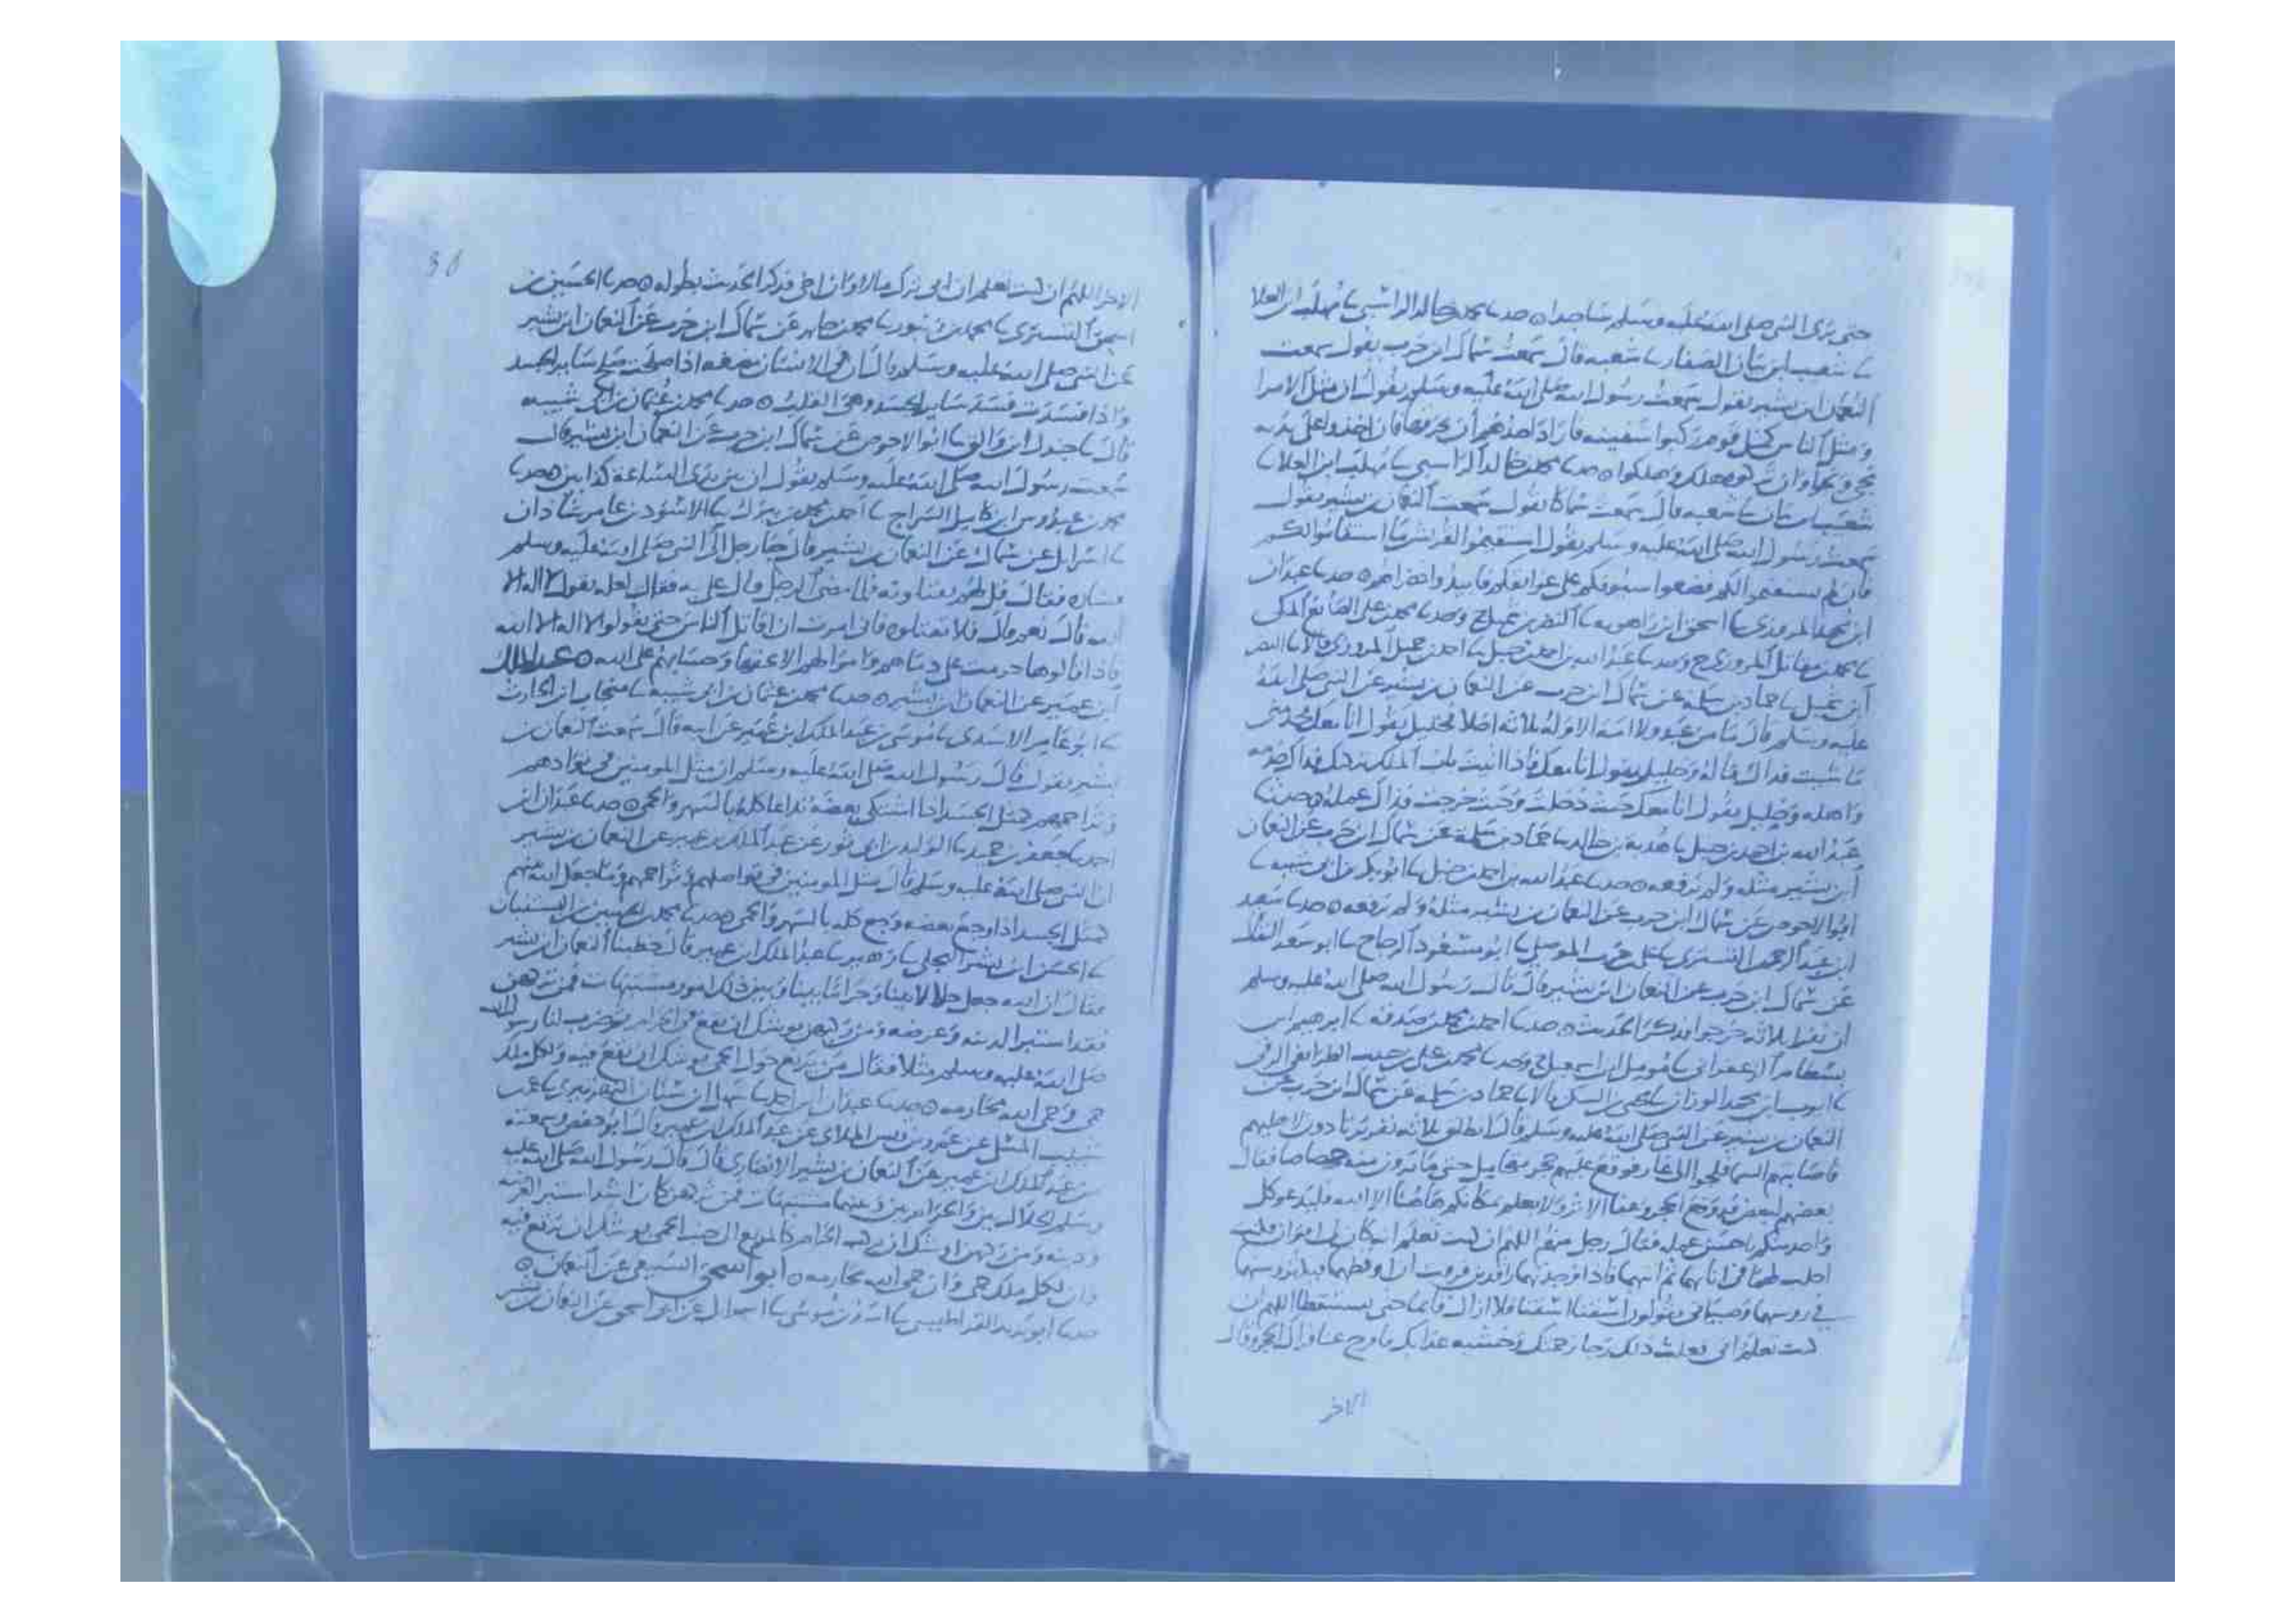 حتى يرى النبي صلى الله عليه وسلم ساجدا ه حدثنا محمد بن خالد الراسبي نا مهلب ابن العلا
نا شعيب ابن بيان الصفار نا شعبه قال سمعت سماك ابن حرب يقول سمعت
النعمان ابن بشير يقول سمعت رسول الله صلى الله عليه وسلم يقول ان مثل الامرا
ومثل الناس كمثل قوم ركبوا سفينه فاراد احدهم ان يخرقها فان اخذوا على يديه
نجى ونجوا وان تركوه هلك وهلكوا ه حدثنا محمد بن خالد الراسبي نا مهلب ابن العلا نا
شعيب ابن بيان نا شعبه قال سمعت سماكا يقول سمعت النعمان بن بشير يقول
سمعت رسول الله صلى الله عليه وسلم يقول استقيموا لقريش ما استقاموا لكم
فان لم يستقيموا لكم فضعوا سيوفكم على عواتقكم فابيدوا خضراهم ه حدثنا عبدان
ابن محمد المروزي نا اسحق ابن راهويه نا النضر بن شميل ح وحدثنا محمد بن علي الصائغ المكي
نا محمد بن مقاتل المروزي ح وحدثنا عبد الله بن احمد بن حنبل نا احمد بن جميل المروزي قالا نا النضر
ابن شميل نا حماد بن سلمة عن سماك ابن حرب عن النعمان بن بشير عن النبي صلى الله
عليه وسلم قال ما من عبد ولا امة الا وله ثلاثه اخلا فخليل يقول انا معك فخذ مني
ما شيت فذاك ماله وخليل يقول انا معك فاذا اتيت باب الملك تركتك فذاك خدمه
واهله وخليل يقول انا معك حيث دخلت وحيث خرجت فذاك عمله ه حدثنا
عبد الله بن احمد بن حنبل نا هدبة بن خالد نا حماد بن سلمة عن سماك ابن حرب عن النعمان
ابن بشير مثله ولم يرفعه ه حدثنا عبد الله بن احمد بن حنبل نا ابو بكر بن ابي شيبه نا
ابو الاحوص عن سماك ابن حرب عن النعمان بن بشير مثله ولم يرفعه ه حدثنا سعيد
ابن عبد الرحمن التستري نا علي بن حرب الموصلي نا ابو مسعود الزجاج نا ابو سعد البقال
عن سماك ابن حرب عن النعمان ابن بشير قال قال رسول الله صلى الله عليه وسلم
ان نفرا ثلاثه خرجوا فذكر الحديث ه حدثنا احمد بن محمد بن صدقه نا ابرهيم ابن
بسطام الزعفراني نا مومل ابن اسمعيل ح وحدثنا محمد بن علي بن حبيب الطرائفي الرقي
نا ايوب ابن محمد الوزان نا يحيى بن السكن قالا نا حماد بن سلمه عن سماك ابن حرب عن
النعمان بن بشير عن النبي صلى الله عليه وسلم قال انطلق ثلاثه نفر يرتادون لاهليهم
فاصابتهم السما فلجوا الى غار فوقع عليهم حجر متجافل حتى ما يرون منه خصاصا فقال
بعضهم لبعض قد وقع الحجر وعفا الاثر ولا يعلم مكانكم هاهنا الا الله فليدعو كل
واحد منكم باحسن عمله فقال رجل منهم اللهم ان كنت تعلم انه كان لي ابوان فكنت
احلب لهما في انائهما ثم اتيهما فاذا وجدتهما راقدين قمت ان اوقظهما
في روسهما وصبياني يقولون اسقنا اسقنا فلا ازال قائما حتى يستيقظا اللهم ان
كنت تعلم اني فعلت ذلك رجا رحمتك وخشيه عذابك فافرج عنا فزال الحجر وقال
الاخر
30
الاخر اللهم ان كنت تعلم ان ابي ترك مالا وان اخي فذكر الحديث بطوله ه حدثنا الحسين بن
اسحق التستري نا محمد بن ثور نا محمد بن طاهر عن سماك ابن حرب عن النعمان ابن بشير
عن النبي صلى الله عليه وسلم قال ان في الانسان مضغه اذا صلحت صلح سائر الجسد
واذا فسدت فسد سائر الجسد وهي القلب ه حدثنا محمد بن عثمان بن ابي شيبه
قال نا جندل ابن والق نا ابو الاحوص عن سماك ابن حرب عن النعمان ابن بشير قال
سمعت رسول الله صلى الله عليه وسلم يقول ان بين يدي الساعة كذابين ه حدثنا
محمد بن عبدوس ابن كامل السراج نا احمد بن محمد بن نيزك نا الاسود بن عامر شاذان
نا اسرائل عن سماك عن النعمان بن بشير قال جا رجل الى النبي صلى الله عليه وسلم
فساره فقال قل لهم يقتلونه فلما مضى الرجل قال علي به فقال لعله يقول لا اله الا
الله قال نعم قال فلا تقتلوه فاني امرت ان اقاتل الناس حتى يقولوا لا اله الا الله
فاذا قالوها حرمت علي دماءهم واموالهم الا بحقها وحسابهم على الله ه عبد الملك
ابن عمير عن النعمان ابن بشير ه حدثنا محمد بن عثمان بن ابي شيبه نا منجاب ابن الحارث
نا ابو عامر الاسدي نا موسى بن عبد الملك ابن عمير عن ابيه قال سمعت النعمان بن
بشير يقول قال رسول الله صلى الله عليه وسلم ان مثل المومنين في توادهم
وتراحمهم كمثل الجسد اذا اشتكى بعضه تداعا كله بالسهر والحمى ه حدثنا عبدان ابن
احمد نا جعفر بن حميد نا الوليد بن ابي ثور عن عبد الملك بن عمير عن النعمان بن بشير
ان النبي صلى الله عليه وسلم قال مثل المومنين في تواصلهم وتراحمهم وما جعل الله بينهم
كمثل الجسد اذا وجع بعضه وجع كله بالسهر والحمى ه حدثنا محمد بن الحسين بن البستنبان
نا الحسن ابن بشر البجلي نا زهير نا عبد الملك ابن عمير قال خطبنا النعمان ابن بشير
فقال ان الله جعل حلالا بينا وحراما بينا وبين ذلك امور مشتبهات فمن تركهن
فقد استبرا لدينه وعرضه ومن ركبهن يوشك ان يقع في الحرام وضرب لنا رسول الله
صلى الله عليه وسلم مثلا فقال من يرتع حول الحمى يوشك ان يقع فيه ولكل ملك
حمى وحمى الله محارمه ه حدثنا عبدان ابن احمد نا سهل ابن سنان نا
عن عمرو بن قيس الملائي عن عبد الملك ابن عمير قال ابو حفص وسمعته
من عبد الملك ابن عمير عن النعمان بن بشير الانصاري قال قال رسول الله صلى الله عليه
وسلم الحلال بين والحرام بين وبينهما مشتبهات فمن تركهن كان اشد استبرا لعرضه
ودينه ومن ركبهن اوشك ان يركب الحرام كالمرتع الى جنب الحمى يوشك ان يرتع فيه
وان لكل ملك حمى وان حمى الله محارمه ه ابو اسحق السبيعي عن النعمان ه
حدثنا ابو يزيد القراطيسي نا اسد بن موسى نا اسرائل عن ابي اسحق عن النعمان بن بشير